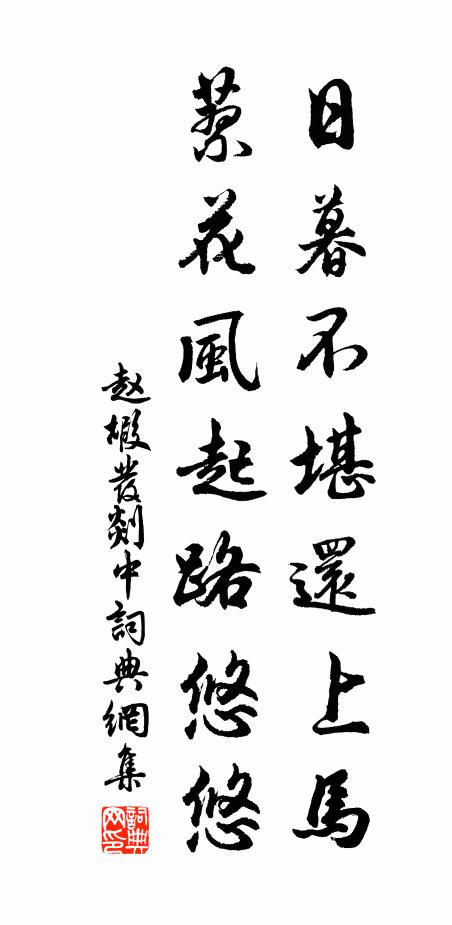 日暮不堪還上馬
蓼花風起路悠悠
赵嘏發剡中詞典網集
詞典
网印